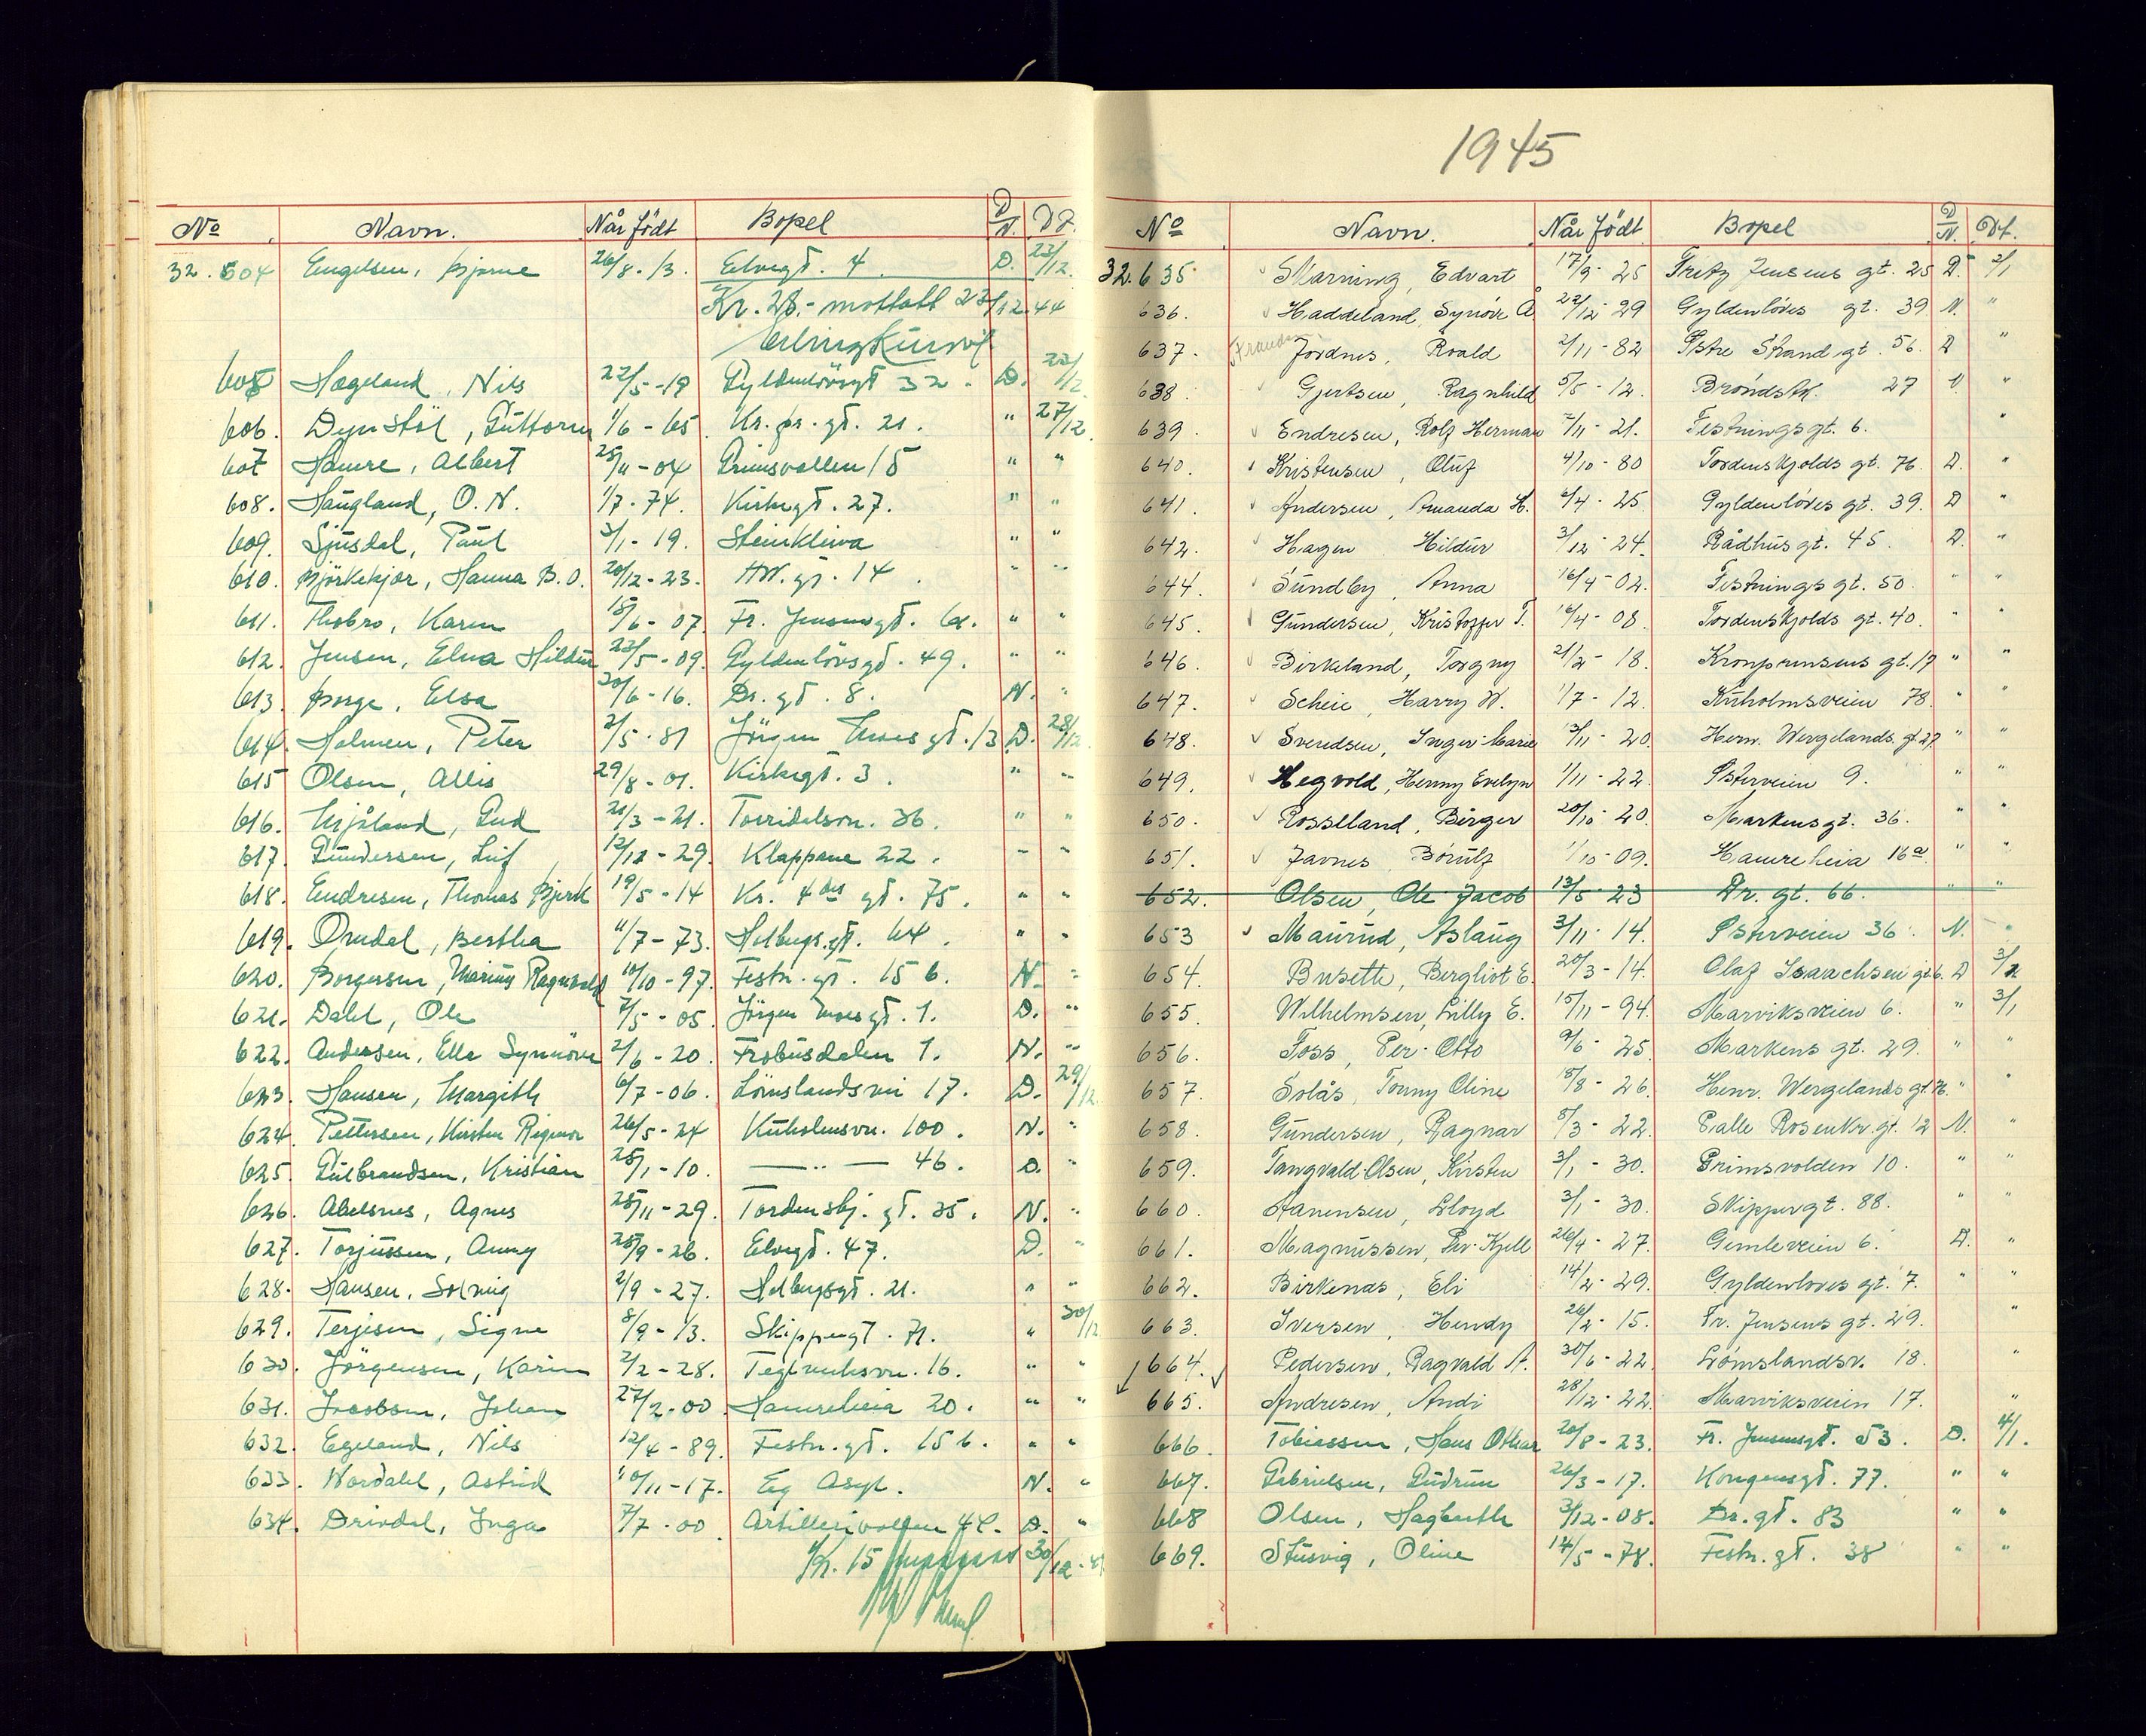 No Navn. Når født Bopel D/N. Df.
32.604 Engelsen, Bjarne 26/8-13. Elvegt. 4. D. 23/12.
Kr. 28,- mottatt 23/12.44
605 Hægeland, Nils 22/5-19 Gyldenlövsgt 32. D. 23/12
606. Dynstöl, Guttorm 1/6-65. Kr. pr. gt. 21. " 27/12.
607 Hamre, Albert 25/11-04 Grimsvollen 15 " "
608. Haugland, O. N. 1/7-74. Kirkegt. 27. " "
609. Sjusdal, Paul 3/1-19. Steinkleiva " "
610. Björkekjær, Hanna B.O. 20/12-23. HW. gt. 14. " "
611. Thobro, Karen 15/6-07. Fr. Jensensgt. 61. " "
612. Jensen, Elna Hildur 23/5-09. Gyldenlövsgt. 49. " "
613. Borge, Elsa 20/6-16. Dr. gt. 8. N. "
614. Holmen, Peter 2/5-81 Jörgen Moes gt. 13 D. 28/12.
615 Olsen, Allis 29/8-01. Kirkegt. 3. " "
616. Mjåland, Gud 21/3-21. Torridalsvn. 36. " "
617. Gundersen, Leif 12/12-29. Klappane 22. " "
618. Endresen, Thomas Bjerk 19/5-14 Kr. 4des gt. 75. " "
619. Omdal, Bertha 11/7-73. Holbergs.gt. 64. " "
620. Borgersen, Marius Ragnvald 10/10-97. Festn. gt. 15 b. N. "
621. Dahl, Ole 7/5-05. Jörgen Moes gt. 1. D. "
622. Andersen, Ella Synnöve 2/6-20. Frobusdalen 1. N. "
623. Hansen, Margith 6/7-06. Lömslandsvei 17. D. 29/12.
624. Pettersen, Kirsten Rigmor 26/5-24 Kuholmsvn. 100. N. "
625. Gulbrandsen, Kristian 25/1-10. — " — 46. D. "
626. Abelsnes, Agnes 25/11-29. Tordenskj. gt. 35. N. "
627. Torjussen, Anny 25/9-26. Elvegt. 47. D. "
628. Hansen, Solveig 2/9-27. Holbergsgt. 21. " "
629. Terjesen, Signe 8/9-13. Skippergt. 71. " 30/12
630. Jörgensen, Karin 2/2-28. Teglverksvn. 16. " "
631. Jacobsen, Johan 27/2-00 Hamreheia 20. " "
632. Egeland, Nils 12/4-89. Festn. gt. 15 b. " "
633. Nordahl, Astrid 10/11-17. Eg Asyl. N. "
634. Drivdal, Inga 7/7-00 Artillerivollen 4C. D. "
Kr. 15 30/12-
1945
No Navn. Når født Bopel D/N. Df.
32.635 Marning, Edvart 17/9-25 Fretz Jensens gt. 25 D. 2/1
636. Haddeland, Synöve A. 22/12-29 Gyldenlöves gt. 39 N. "
637. Jordnes, Roald 2/11-82 Östre Strand gt. 56. D "
638. Gjertsen, Ragnhild 5/5-12. Bröndstk. 27 "
639. Endresen, Rolf Herman 7/11-21. Festningsgt. 6. "
640. Kristensen, Oluf 4/10-80 Tordenskjolds gt. 76. D. "
641. Andersen, Amanda H. 6/4-25 Gyldenlöves gt. 39. D "
642. Hagen Hildur 3/12-24. Rådhus gt. 45. D. "
644. Sundby, Anna 16/4-02. Festnings gt. 50 " "
645. Gundersen, Kristoffer T. 16/4-08. Tordenskjolds gt. 40. " "
646. Birkeland, Torgny 21/2-18. Kronprinsens gt. 17 " "
647. Scheie, Harry W. 1/7-12. Kuholmsveien 78. " "
648. Svendsen, Inger-Marie 13/11-20. Henr. Wergelands gt 27 " "
649. Hegvold, Henny Evelyn 1/11-22. Østerveien 9. " "
650. Rosseland, Birger 20/10-20. Markens gt. 36. " "
651. Favnes Börulf 1/10-09. Hamreheia 16a. " "
652. Olsen, Ole Jacob 13/5-23 Dr. gt. 66. " "
653 Maurud, Aslaug 3/11-14. Østerveien 36. N. "
654. Busette, Bergliot E. 20/3-14. Olaf Isaachsen gt 6. D 3/1
655. Wilhelmsen, Lilly E. 15/11-94. Marviksveien 6. " 3/1
656. Foss, Per-Otto 9/6-25. Markens gt. 29. " "
657. Solås, Tonny Oline 18/8-26. Henr. Wergelands gt. 76. " "
658. Gundersen, Ragnar 5/3-22. Palle Rosenkr. gt. 12 N. "
659. Tangvald Olsen, Kirsten 3/1-30. Grimsvolden 10. " "
660. Aanensen, Lloyd 3/1-30. Skippergt. 88. " "
661. Magnussen, Per-Kjell 26/4-27. Gimleveien 6. D. "
662. Birkenæs, Eli 14/2-29. Gyldenløves gt. 7. " "
663. Iversen, Hendy 26/2-15. Fr. Jensens gt. 29. "
664. Pedersen, Ragvald A. 30/6-22. Lömslandsv. 18. "
665. Andresen, Andi 28/12-22. Marviksveien 17. "
666. Tobiassen, Hans Othar 20/8-23. Fr. Jensensgt. 53. D. 4/1.
667. Gabrielsen, Gudrun 26/3-17. Kongensgt. 77. " "
668 Olsen, Hagbarth 3/12-08. Dr. gt. 83 " "
669. Stusvig, Oline 14/5-78. Festn. gt. 38 " "